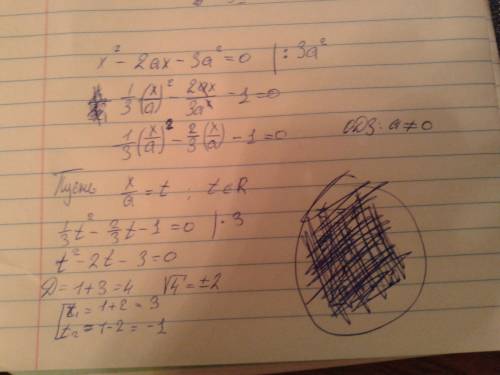 x² - 2ax - 3a² = 0 | : 3a²
1/3 (x/a)² - 2ax/3a² - 1 = 0
1/3 (x/a)² - 2/3 (x/a) - 1 = 0 ОДЗ: a ≠ 0
Пусть x/a = t ; t ∈ R
1/3 t² - 2/3 t - 1 = 0 | · 3
t² - 2t - 3 = 0
D = 1 + 3 = 4 √4 = ±2
[ t₁ = 1 + 2 = 3
t₂ = 1 - 2 = -1